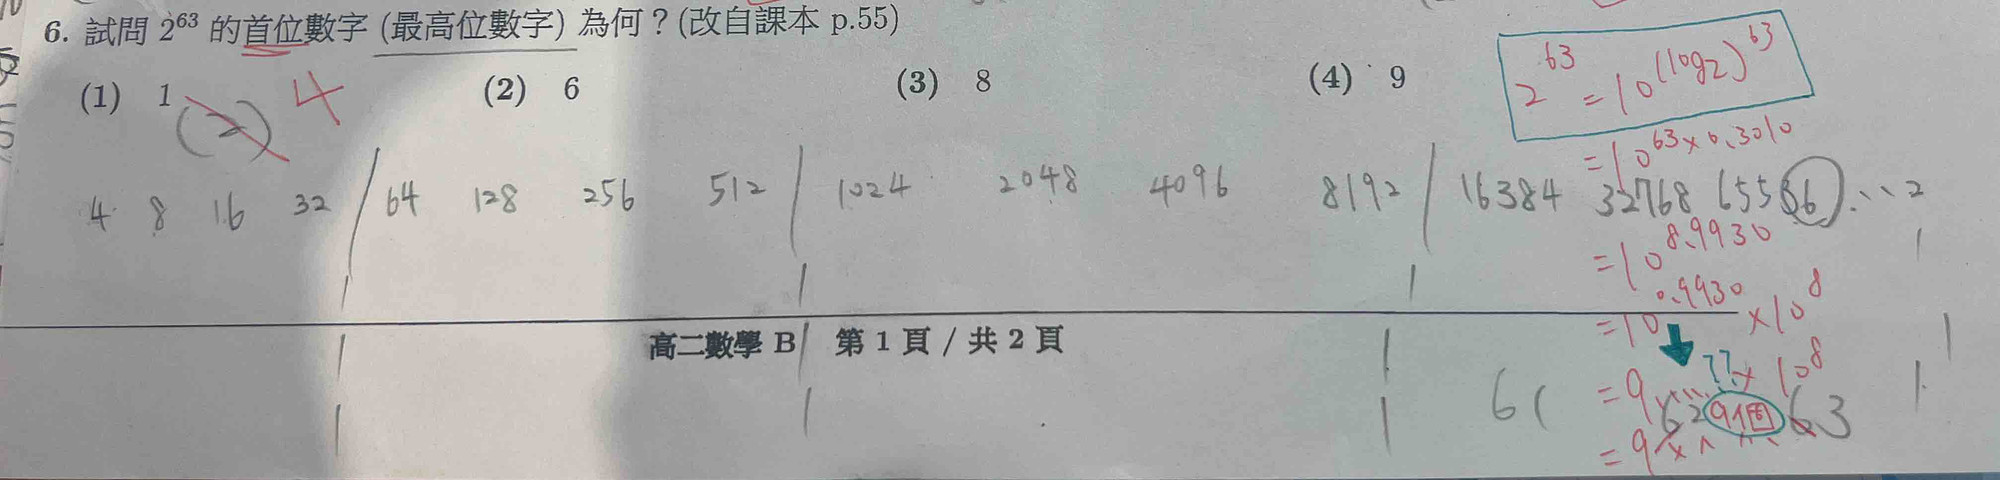 6. 試問 2⁶³ 的首位數字 (最高位數字) 為何？(改自課本 p.55)
(1) 1 (2) 6 (3) 8 (4) 9
(2) 4
4 8 16 32 64 128 256 512 1024 2048 4096 8192 16384 32768 65536 ... 2
2⁶³ = 10^(log2)^63
= 10^63×0.3010
= 10^8.9930
= 10^0.9930 × 10^8
= 9..... ?? × 10^8
61 62 9個 63
= 9
高二數學 B 第 1 頁 / 共 2 頁